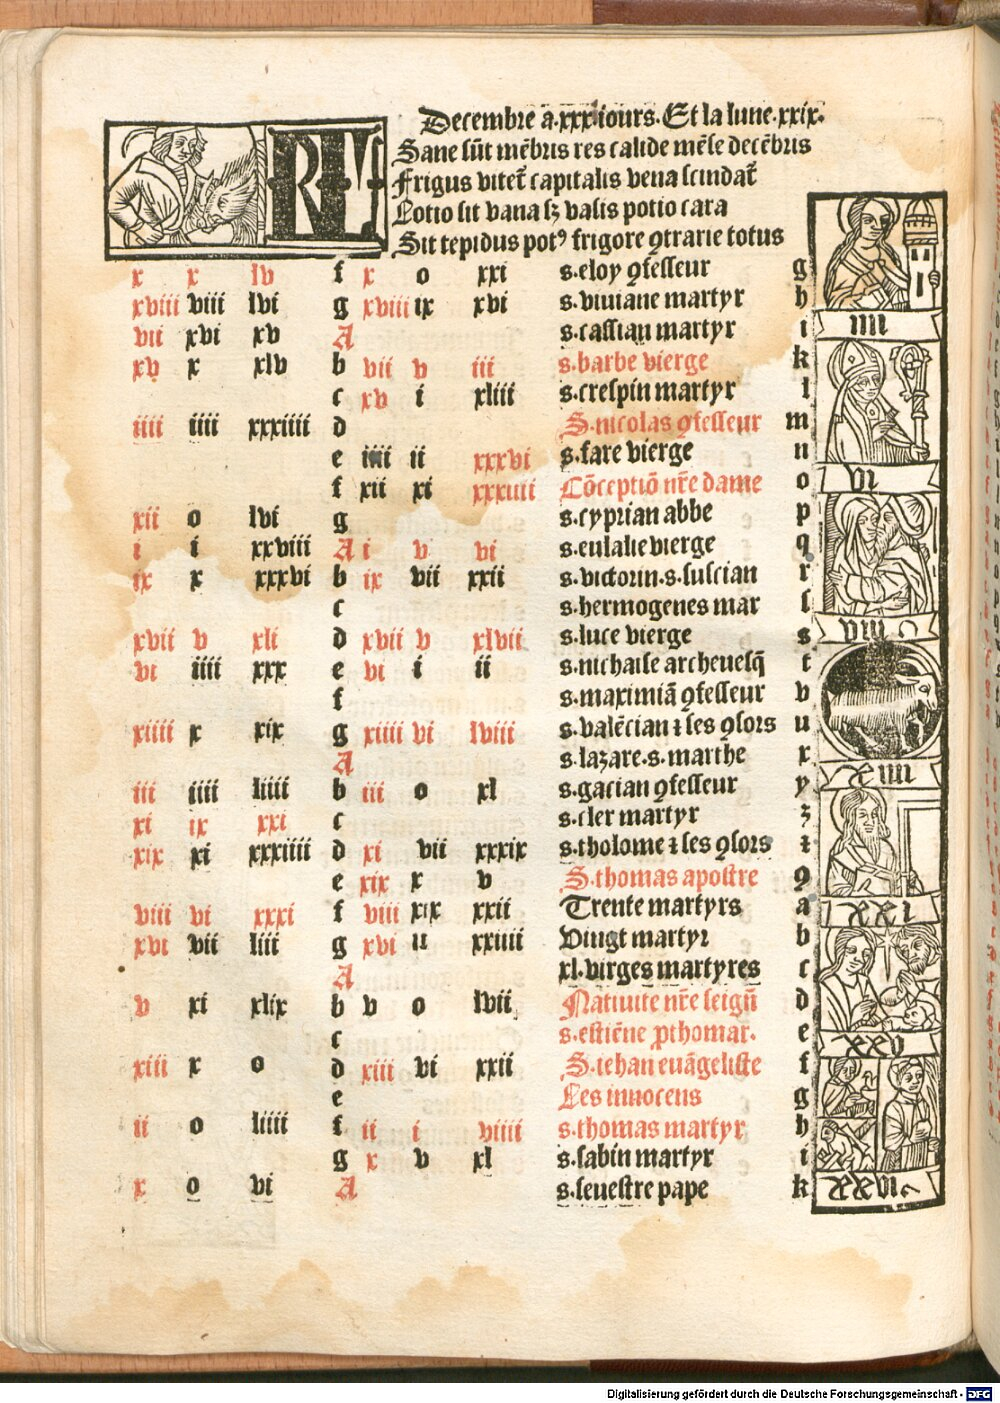 Decembre a.xxxi iours. Et la lune.xxix.
Sane sūt mēbris res calide mēse decēbris
Frigus vitet̄ capitalis vena scindat̄
Lotio sit vana sꝫ vasis potio cara
Sit tepidus potꝰ frigore ꝯtrarie totus
KL
x x lv f x o xxi s.eloy ꝯfesseur g
xviii viii lvi g xviii ix xvi s.viuiane martyr h
vii xvi xv A s.cassian martyr i
xv x xlv b vii v iii s.barbe vierge k
c xv i xliii s.crespin martyr l
iiii iiii xxxiiii d S.nicolas ꝯfesseur m
e iiii ii xxxvi s.fare vierge n
f xii xi xxxiiii Cōceptiō nr̄e dame o
xii o lvi g s.cyprian abbe p
i i xxviii A i v vi s.eulalie vierge q
ix x xxxvi b ix vii xxii s.victorin.s.fuscian r
c s.hermogenes mar ſ
xvii v xli d xvii v xlvii s.luce vierge s
vi iiii xxx e vi i ii s.nichaise archeuesq̄ t
f s.maximiā ꝯfesseur v
xiiii x xix g xiiii vi lviii s.valēcian ⁊ ses ꝯsors u
A s.lazare.s.marthe x
iii iiii liiii b iii o xl s.gacian ꝯfesseur y
xi ix xxi c s.cler martyr z
xix xi xxxiiii d xi vii xxxix s.tholome ⁊ ses ꝯsors ⁊
e xix x v S.thomas apostre ꝯ
viii vi xxxi f viii xix xxii Trente martyrs a
xvi vii liii g xvi ii xxiiii Vingt martyr b
A xl.virges martyres c
v xi xlix b v o lvii Natiuite nr̄e seign̄ d
c s.estiēne ꝓthomar. e
xiii x o d xiii vi xxii S.iehan euāgeliste f
e Les innocens g
ii o liiii f ii i viiii s.thomas martyr h
g x v xl s.sabin martyr i
x o vi A s.seuestre pape k
IIII
VI
VIII
XIII
XXI
XXV
XXVI
Digitalisierung gefördert durch die Deutsche Forschungsgemeinschaft - DFG